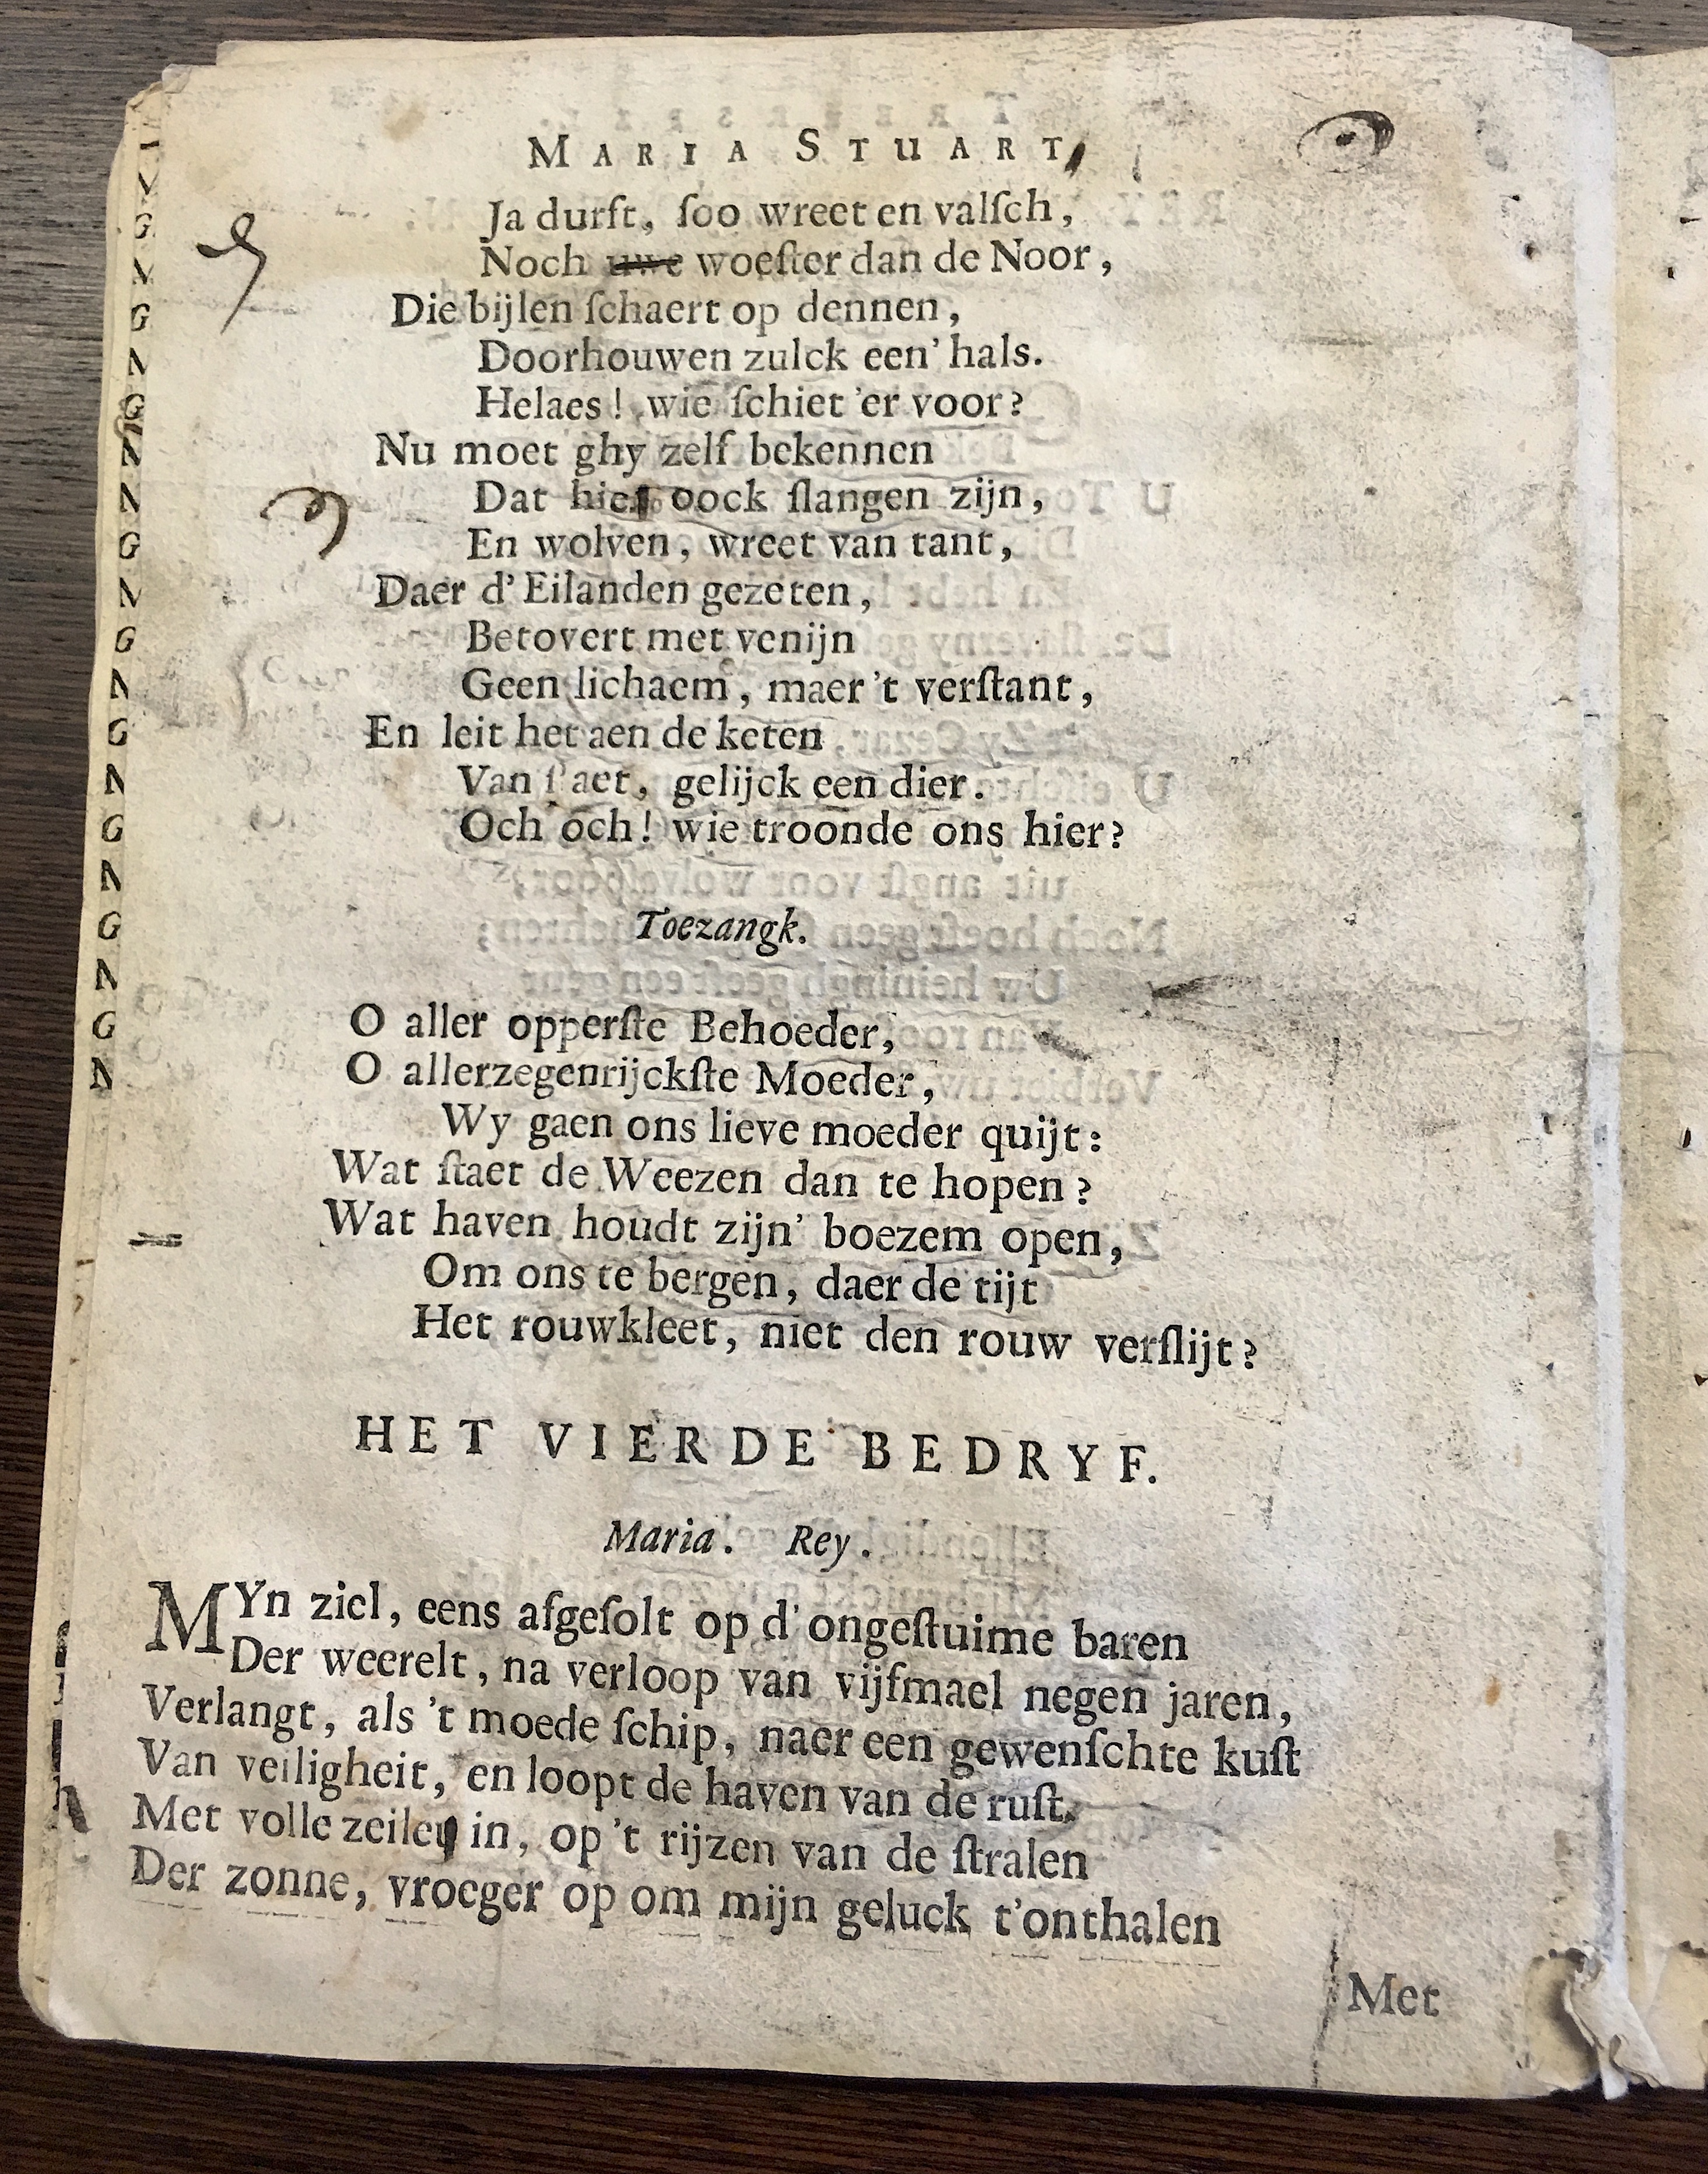 MARIA STUART,
Ja durft, ſoo wreet en valſch,
Noch uwe woeſter dan de Noor,
Die bijlen ſchaert op dennen,
Doorhouwen zulck een' hals.
Helaes! wie ſchiet 'er voor?
Nu moet ghy zelf bekennen
Dat hier oock ſlangen zijn,
En wolven, wreet van tant,
Daer d'Eilanden gezeten,
Betovert met venijn
Geen lichaem, maer 't verſtant,
En leit het aen de keten
Van ſtaet, gelijck een dier.
Och och! wie troonde ons hier?
Toezangk.
O aller opperſte Behoeder,
O allerzegenrijckſte Moeder,
Wy gaen ons lieve moeder quijt:
Wat ſtaet de Weezen dan te hopen?
Wat haven houdt zijn' boezem open,
Om ons te bergen, daer de tijt
Het rouwkleet, niet den rouw verſlijt?
HET VIERDE BEDRYF.
Maria. Rey.
MYn ziel, eens afgeſolt op d'ongeſtuime baren
Der weerelt, na verloop van vijfmael negen jaren,
Verlangt, als 't moede ſchip, naer een gewenſchte kuſt
Van veiligheit, en loopt de haven van de ruſt.
Met volle zeilen in, op 't rijzen van de ſtralen
Der zonne, vroeger op om mijn geluck t'onthalen
Met